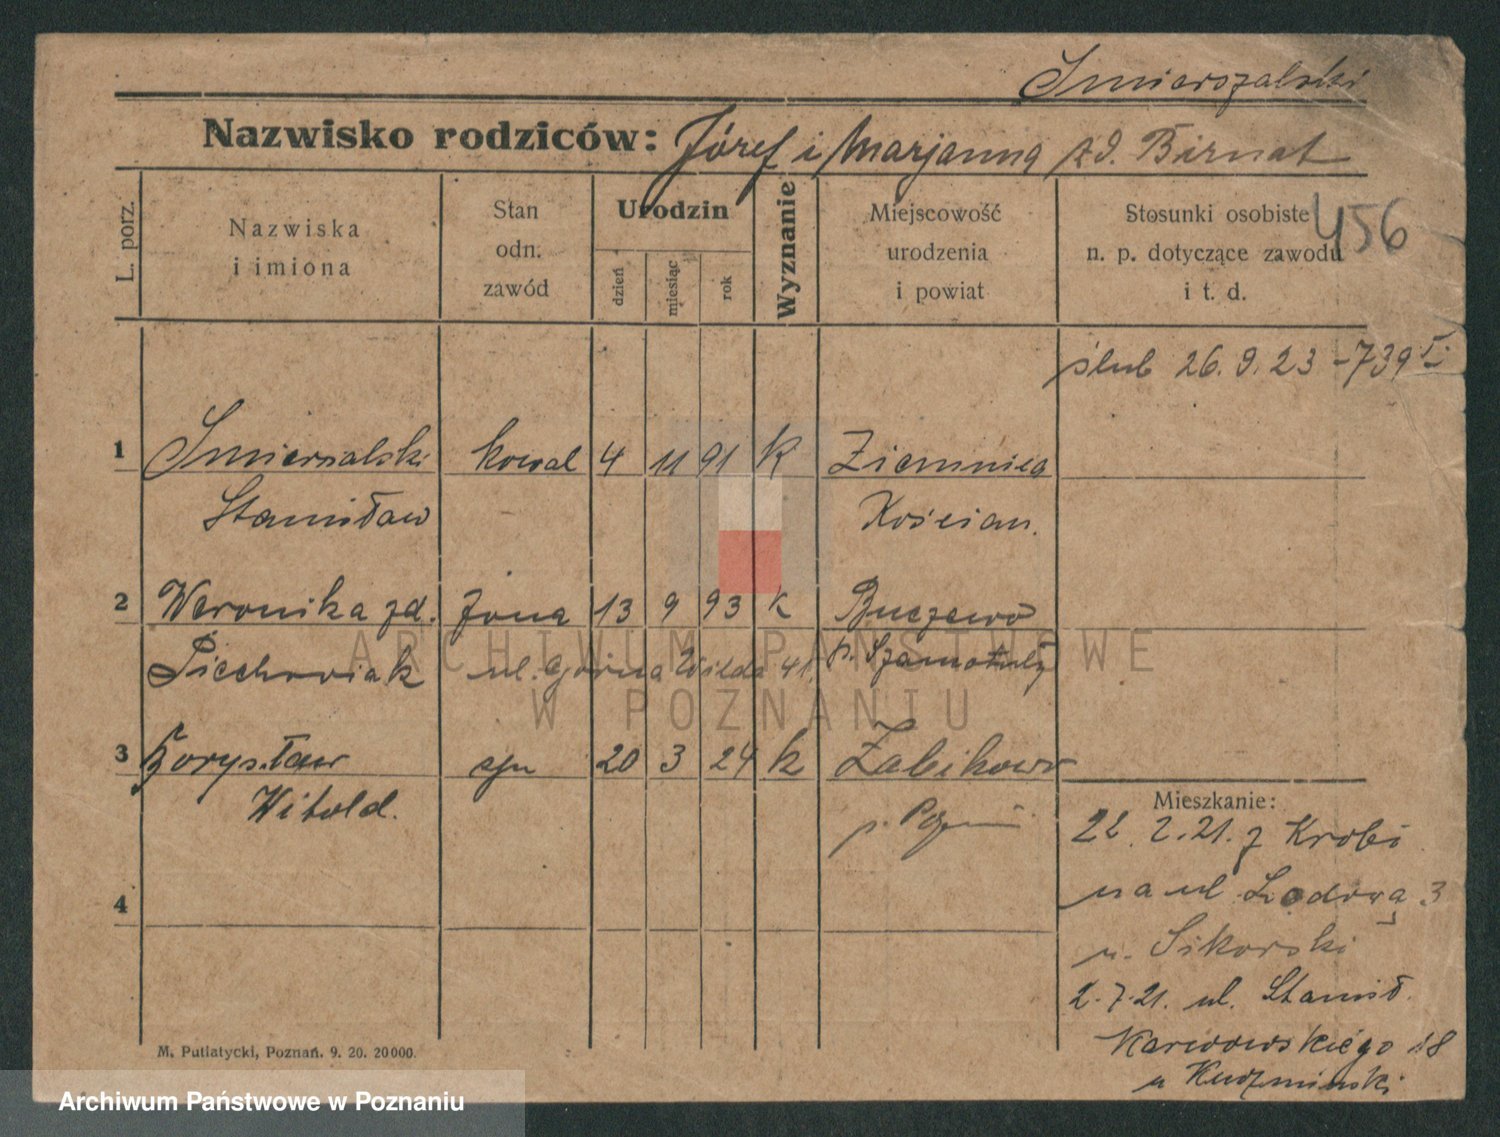 Smierzalski
Nazwisko rodziców: Józef i Marjanna zd. Biernat
L. porz.
Nazwiska
i imiona
Stan
odn.
zawód
Urodzin
dzień
miesiąc
rok
Wyznanie
Miejscowość
urodzenia
i powiat
Stosunki osobiste
n. p. dotyczące zawodu
i t. d.
456
ślub 26. 9. 23 - 739
1 Smierzalski kowal 4 11 91 k Ziemnice
Stanisław Kościan.
2 Weronika zd. żona 13 9 93 k Buczewo
Piechowiak ul. Górna Wilda 41. p. Szamotuły
3 Borysław syn 20 3 24 k Żabikowo
Witold.
4
Mieszkanie:
22. 2. 21. z Krobi
na ul. 3
u. Sikorski
2.7.21. ul. Stanisł.
Karwowskiego 18
u Kuzminski
M. Putiatycki, Poznań. 9. 20. 20000.
ARCHIWUM PAŃSTWOWE
W POZNANIU
Archiwum Państwowe w Poznaniu